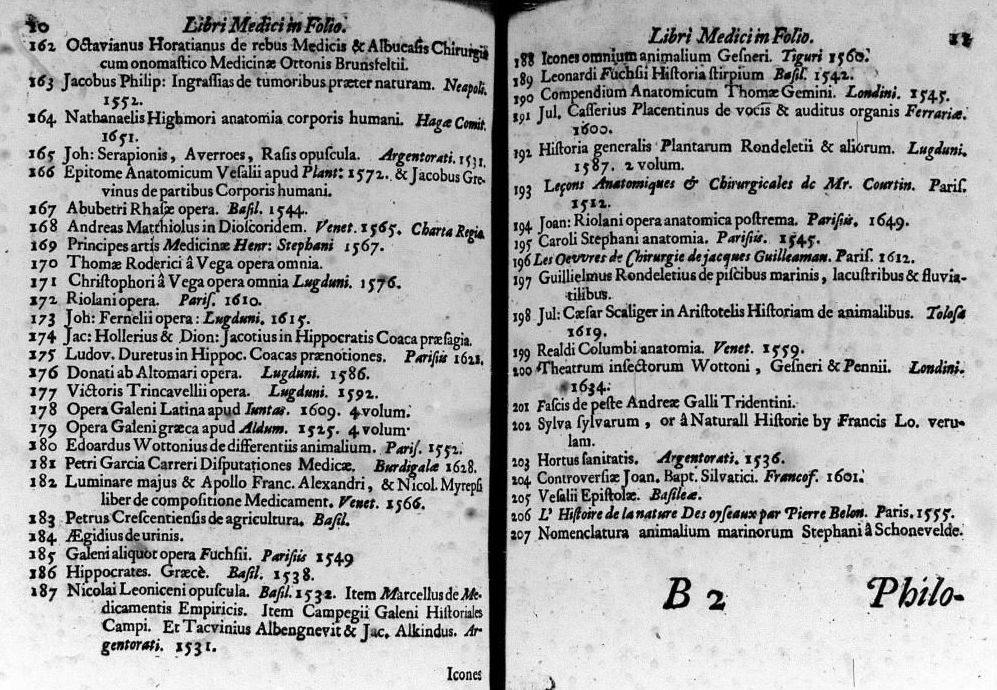 10 Libri Medici in Folio.
162 Octavianus Horatianus de rebus Medicis & Albucasis Chirurgia
cum onomastico Medicinæ Ottonis Brunsfeltii.
163 Jacobus Philip: Ingrassias de tumoribus præter naturam. Neapoli.
1552.
164 Nathanaelis Highmori anatomia corporis humani. Hagæ Comit.
1651.
165 Joh: Serapionis, Averroes, Rasis opuscula. Argentorati. 1531.
166 Epitome Anatomicum Vesalii apud Plant: 1572. & Jacobus Gre-
vinus de partibus Corporis humani.
167 Abubetri Rhasæ opera. Basil. 1544.
168 Andreas Matthiolus in Dioscoridem. Venet. 1565. Charta Regia.
169 Principes artis Medicinæ Henr: Stephani 1567.
170 Thomæ Roderici â Vega opera omnia.
171 Christophori â Vega opera omnia Lugduni. 1576.
172 Riolani opera. Paris. 1610.
173 Joh: Fernelii opera: Lugduni. 1615.
174 Jac: Hollerius & Dion: Jacotius in Hippocratis Coaca præsagia.
175 Ludov. Duretus in Hippoc. Coacas prænotiones. Parisiis 1621.
176 Donati ab Altomari opera. Lugduni. 1586.
177 Victoris Trincavellii opera. Lugduni. 1592.
178 Opera Galeni Latina apud Iuntas. 1609. 4 volum.
179 Opera Galeni græca apud Aldum. 1525. 4 volum.
180 Edoardus Wottonius de differentiis animalium. Paris. 1552.
181 Petri Garcia Carreri Disputationes Medicæ. Burdigalæ 1628.
182 Luminare majus & Apollo Franc. Alexandri, & Nicol. Myrepsi
liber de compositione Medicament. Venet. 1566.
183 Petrus Crescentiensis de agricultura. Basil.
184 Ægidius de urinis.
185 Galeni aliquot opera Fuchsii. Parisiis 1549
186 Hippocrates. Græcè. Basil. 1538.
187 Nicolai Leoniceni opuscula. Basil. 1532. Item Marcellus de Me-
dicamentis Empiricis. Item Campegii Galeni Historiales
Campi. Et Tacvinius Albengnevit & Jac. Alkindus. Ar-
gentorati. 1531.
Icones
Libri Medici in Folio.
188 Icones omnium animalium Gesneri. Tiguri 1560.
189 Leonardi Fuchsii Historia stirpium Basil. 1542.
190 Compendium Anatomicum Thomæ Gemini. Londini. 1545.
191 Jul. Casserius Placentinus de vocis & auditus organis Ferrariæ.
1600.
192 Historia generalis Plantarum Rondeletii & aliorum. Lugduni.
1587. 2 volum.
193 Leçons Anatomiques & Chirurgicales de Mr. Courtin. Paris.
1512.
194 Joan: Riolani opera anatomica postrema. Parisiis. 1649.
195 Caroli Stephani anatomia. Parisiis. 1545.
196 Les Oevvres de Chirurgie de jacques Guilleaman. Paris. 1612.
197 Guillielmus Rondeletius de piscibus marinis, lacustribus & fluvia-
tilibus.
198 Jul: Cæsar Scaliger in Aristotelis Historiam de animalibus. Tolosæ
1619.
199 Realdi Columbi anatomia. Venet. 1559.
200 Theatrum insectorum Wottoni, Gesneri & Pennii. Londini.
1634.
201 Fascis de peste Andreæ Galli Tridentini.
202 Sylva sylvarum, or â Naturall Historie by Francis Lo. veru-
lam.
203 Hortus sanitatis. Argentorati. 1536.
204 Controversiæ Joan. Bapt. Silvatici. Francof. 1601.
205 Vesalii Epistolæ. Basileæ.
206 L' Histoire de la nature Des oyseaux par Pierre Belon. Paris. 1555.
207 Nomenclatura animalium marinorum Stephani â Schonevelde.
B 2 Philo-